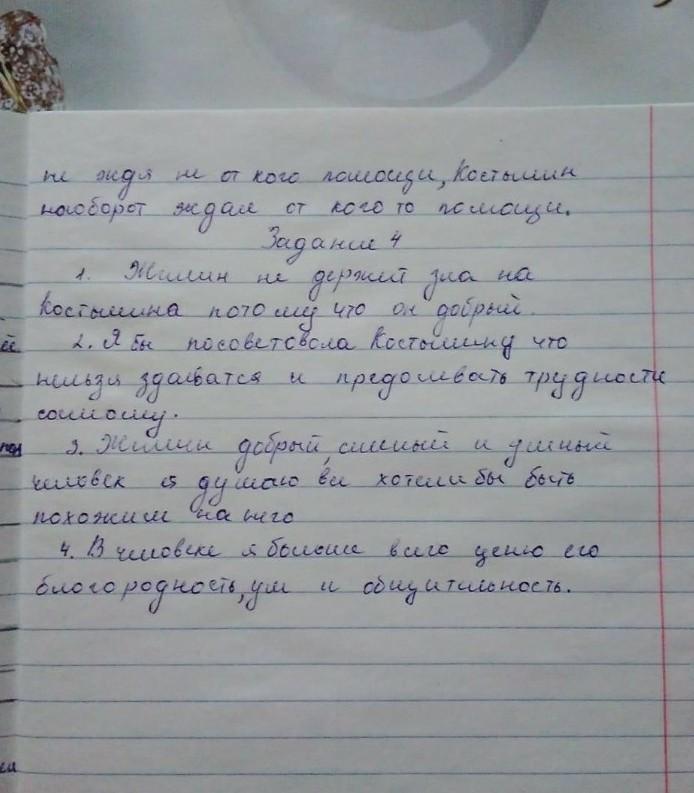 не ждя не от кого помощи, Костылин
наоборот ждал от кого то помощи.
Задание 4
1. Жилин не держит зла на
Костылина потому что он добрый.
2. Я бы посоветовола Костылину что
нельзя здаватся и предолевать трудности
самому.
3. Жилин добрый, сильный и умный
человек я думаю вы хотели бы быть
похожим на него
4. В человеке я больше всего ценю его
благородность, ум и общительность.